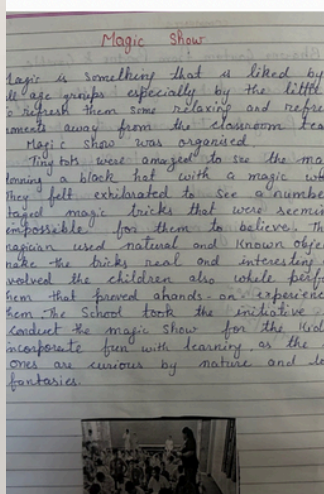 Magic Show
Magic is something that is liked by
all age groups especially by the little
to refresh them some relaxing and refre
moments away from the classroom tea
Magic show was organised
Tiny tots were amazed to see the ma
donning a black hat with a magic w
They felt exhilarated to see a numbe
staged magic tricks that were seemin
impossible for them to believe. Th
magician used natural and known obje
make the tricks real and interesting
involved the children also while perf
them that proved a hands-on experienc
them. The School took the initiative
conduct the magic show for the Kid
incorporate fun with learning, as the
ones are curious by nature and lo
fantasies.